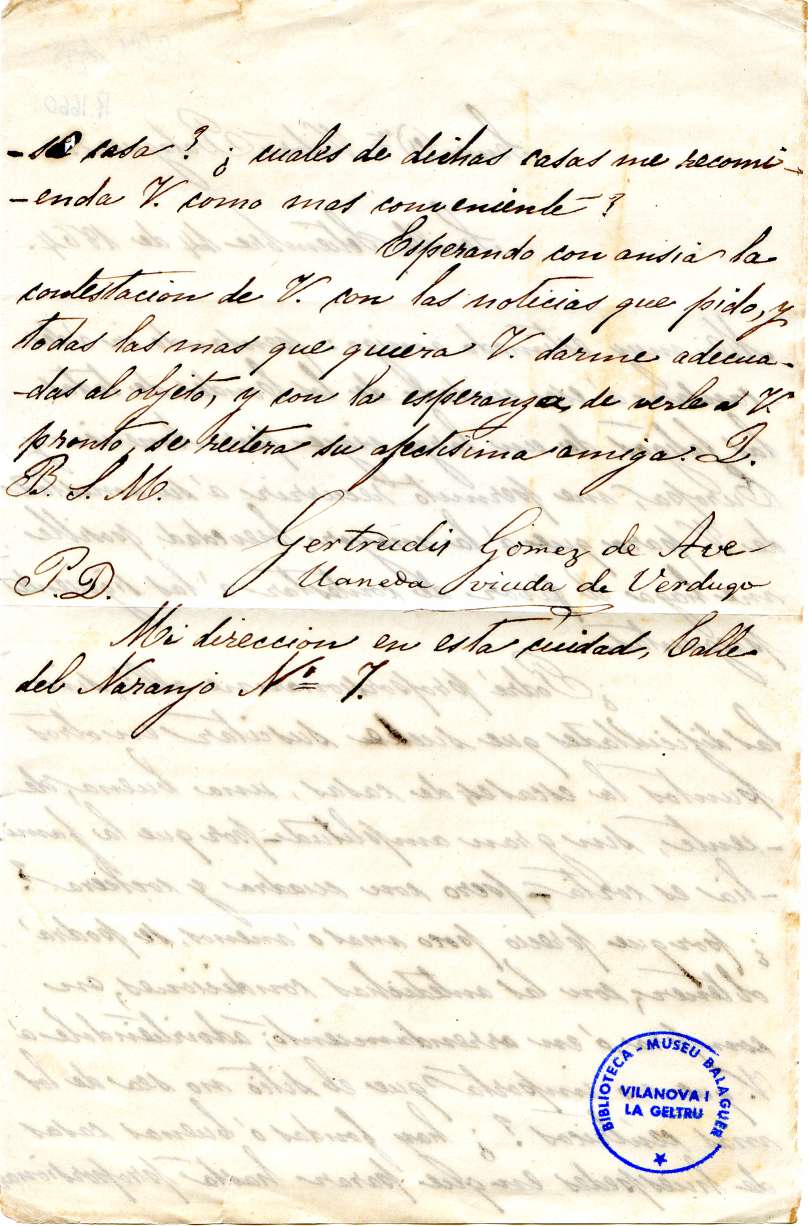 -se casa? ¿ cuales de dichas casas me recomi-
-enda V. como mas conveniente?
Esperando con ansia la
contestacion de V. con las noticias que pido, y
todas las mas que quiera V. darme adecua-
-das al objeto, y con la esperanza de verle a V.
pronto, se reitera su afectisima amiga. Q.
B. S. M.
Gertrudis Gomez de Ave-
llaneda viuda de Verdugo
P.D.
Mi direccion en esta ciudad, Calle
del Naranjo Nº 7.
BIBLIOTECA - MUSEU BALAGUER
VILANOVA I
LA GELTRU